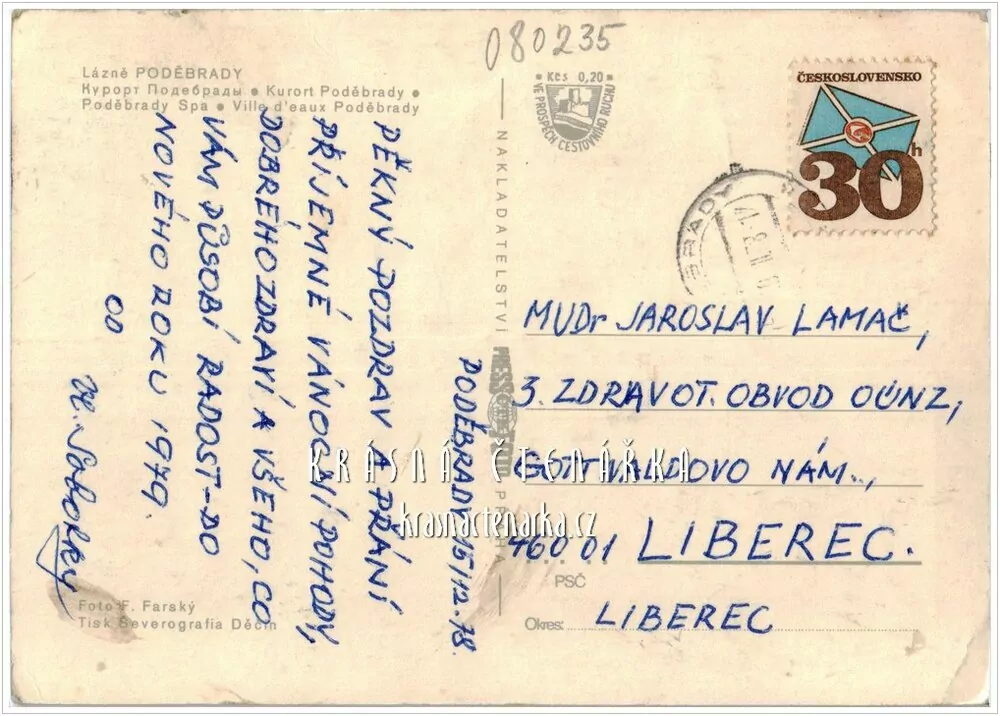 080235
Lázně PODĚBRADY
Курорт Подебрады • Kurort Poděbrady •
Poděbrady Spa • Ville d'eaux Poděbrady
• Kčs 0,20 •
VE PROSPĚCH CESTOVNÍHO RUCHU
ČESKOSLOVENSKO
30h
NAKLADATELSTVÍ
PRAHA
PODĚBRADY 15/12.78.
PĚKNÝ POZDRAV A PŘÁNÍ
PŘÍJEMNÉ VÁNOČNÍ POHODY,
DOBRÉHO ZDRAVÍ A VŠEHO, CO
VÁM PŮSOBÍ RADOST-DO
NOVÉHO ROKU 1979.
OD
MUDr JAROSLAV LAMAČ,
3. ZDRAVOT. OBVOD OÚNZ,
GOTTWALDOVO NÁM.,
460 01 LIBEREC.
PSČ
Okres: LIBEREC
KRÁSNÁ ČTENÁŘKA
krasnactenarka.cz
Foto F. Farský
Tisk Severografia Děčín